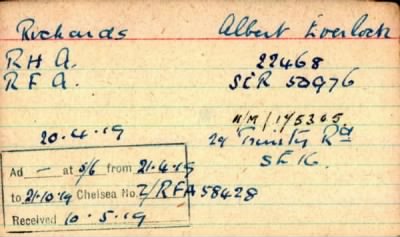 Richards Albert Everlock
R H A. 22468
R F A. SER 50976
N/M/175305
20.4.19 29 Trinity Rd
SE16.
Ad — at 5/6 from 21.4.19
to 21.10.19 Chelsea No. Z/RFA 58428
Received 10.5.19